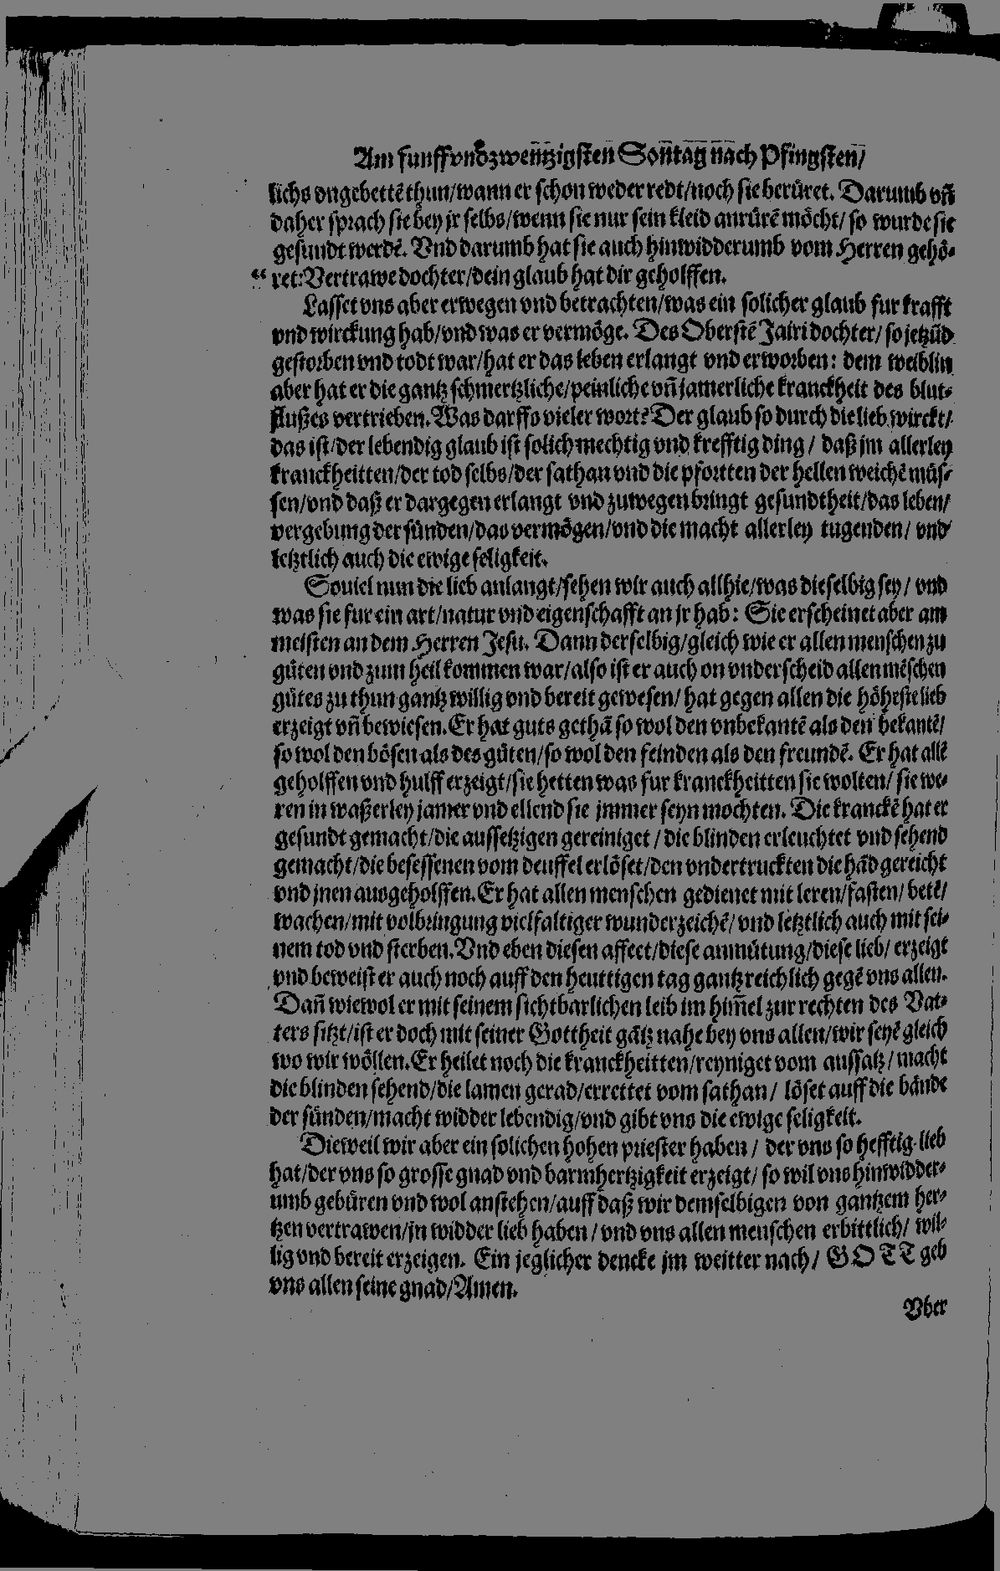 Am funffvndzwentzigsten Sontag nach Pfingsten/
lichs vngebettē thun/wann er schon weder redt/noch sie berüret. Darumb vñ
daher sprach sie bey jr selbs/wenn sie nur sein kleid anrürē möcht/ so wurde sie
gesundt werdē. Vnd darumb hat sie auch hinwidderumb vom Herren gehö-
“ ret: Vertrawe dochter/dein glaub hat dir geholffen.
Lasset vns aber erwegen vnd betrachten/was ein solicher glaub fur krafft
vnd wirckung hab/vnd was er vermöge. Des Oberstē Jairi dochter/ so jetzūd
gestorben vnd todt war/hat er das leben erlangt vnd erworben: dem weiblin
aber hat er die gantz schmertzliche/peinliche vñ jamerliche kranckheit des blut-
flußes vertrieben. Was darffs vieler wort? Der glaub so durch die lieb wirckt/
das ist/der lebendig glaub ist solich mechtig vnd krefftig ding/ daß jm allerley
kranckheitten/der tod selbs/der sathan vnd die pfortten der hellen weichē müs-
sen/vnd daß er dargegen erlangt vnd zuwegen bringt gesundtheit/das leben/
vergebung der sünden/das vermögen/vnd die macht allerley tugenden/ vnd
letztlich auch die ewige seligkeit.
Souiel nun die lieb anlangt/sehen wir auch allhie/was dieselbig sey/ vnd
was sie fur ein art/natur vnd eigenschafft an jr hab: Sie erscheinet aber am
meisten an dem Herren Jesu. Dann derselbig/gleich wie er allen menschen zu
gůten vnd zum heil kommen war/also ist er auch on vnderscheid allen mēschen
gůtes zu thun gantz willig vnd bereit gewesen/ hat gegen allen die höheste lieb
erzeigt vñ bewiesen. Er hat guts gethā so wol den vnbekantē als den bekantē/
so wol den bösen als des gůten/so wol den feinden als den freundē. Er hat allē
geholffen vnd hulff erzeigt/sie hetten was fur kranckheitten sie wolten/ sie we-
ren in waßerley jamer vnd ellend sie jmmer seyn mochten. Die kranckē hat er
gesundt gemacht/die aussetzigen gereiniget/ die blinden erleuchtet vnd sehend
gemacht/die besessenen vom deuffel erlöset/den vndertruckten die hād gereicht
vnd jnen ausgeholffen. Er hat allen menschen gedienet mit leren/fasten/ betē/
wachen/mit volbringung vielfaltiger wunderzeichē/ vnd letztlich auch mit sei-
nem tod vnd sterben. Vnd eben diesen affect/diese anmůtung/diese lieb/ erzeigt
vnd beweist er auch noch auff den heuttigen tag gantz reichlich gegē vns allen.
Dañ wiewol er mit seinem sichtbarlichen leib im him̄el zur rechten des Vat-
ters sitzt/ist er doch mit seiner Gottheit gātz nahe bey vns allen/wir seyē gleich
wo wir wöllen. Er heilet noch die kranckheitten/reyniget vom aussatz/ macht
die blinden sehend/die lamen gerad/errettet vom sathan/ löset auff die bände
der sünden/macht widder lebendig/vnd gibt vns die ewige seligkeit.
Dieweil wir aber ein solichen hohen priester haben/ der vns so hefftig lieb
hat/der vns so grosse gnad vnd barmhertzigkeit erzeigt/ so wil vns hinwidder-
umb gebüren vnd wol anstehen/auff daß wir demselbigen von gantzem her-
tzen vertrawen/jn widder lieb haben/ vnd vns allen menschen erbittlich/ wil-
lig vnd bereit erzeigen. Ein jeglicher dencke jm weitter nach/ GOTT geb
vns allen seine gnad/Amen.
Vber